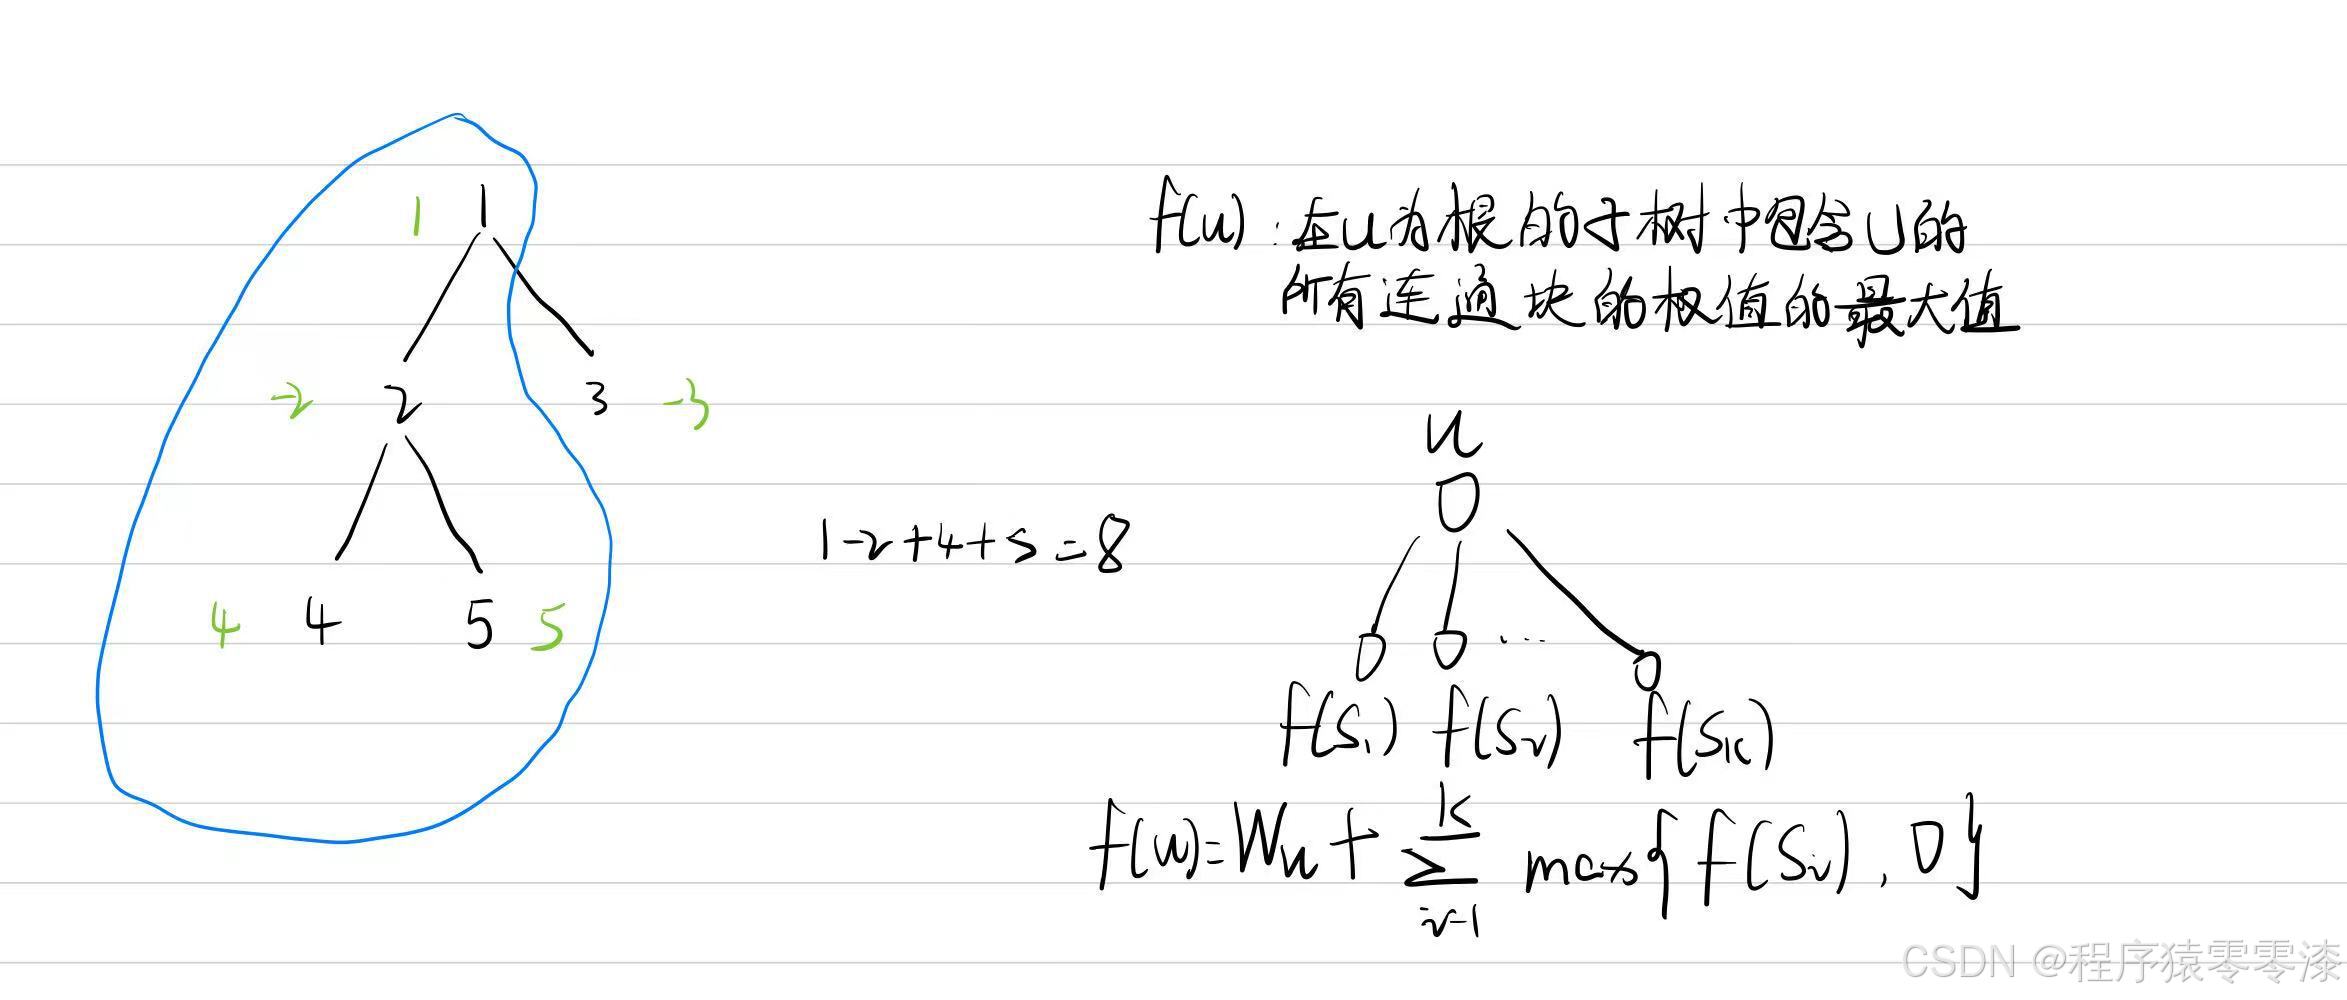 1 1
-2 2 3 -3
4 4 5 5
1-2+4+5=8
f(u):在u为根的子树中包含U的
所有连通块的权值的最大值
u
...
f(S₁) f(S₂) f(Sₖ)
f(u)=Wu+∑ᵢ₌₁ᵏ max{f(Sᵢ),0}
CSDN @程序猿零零漆